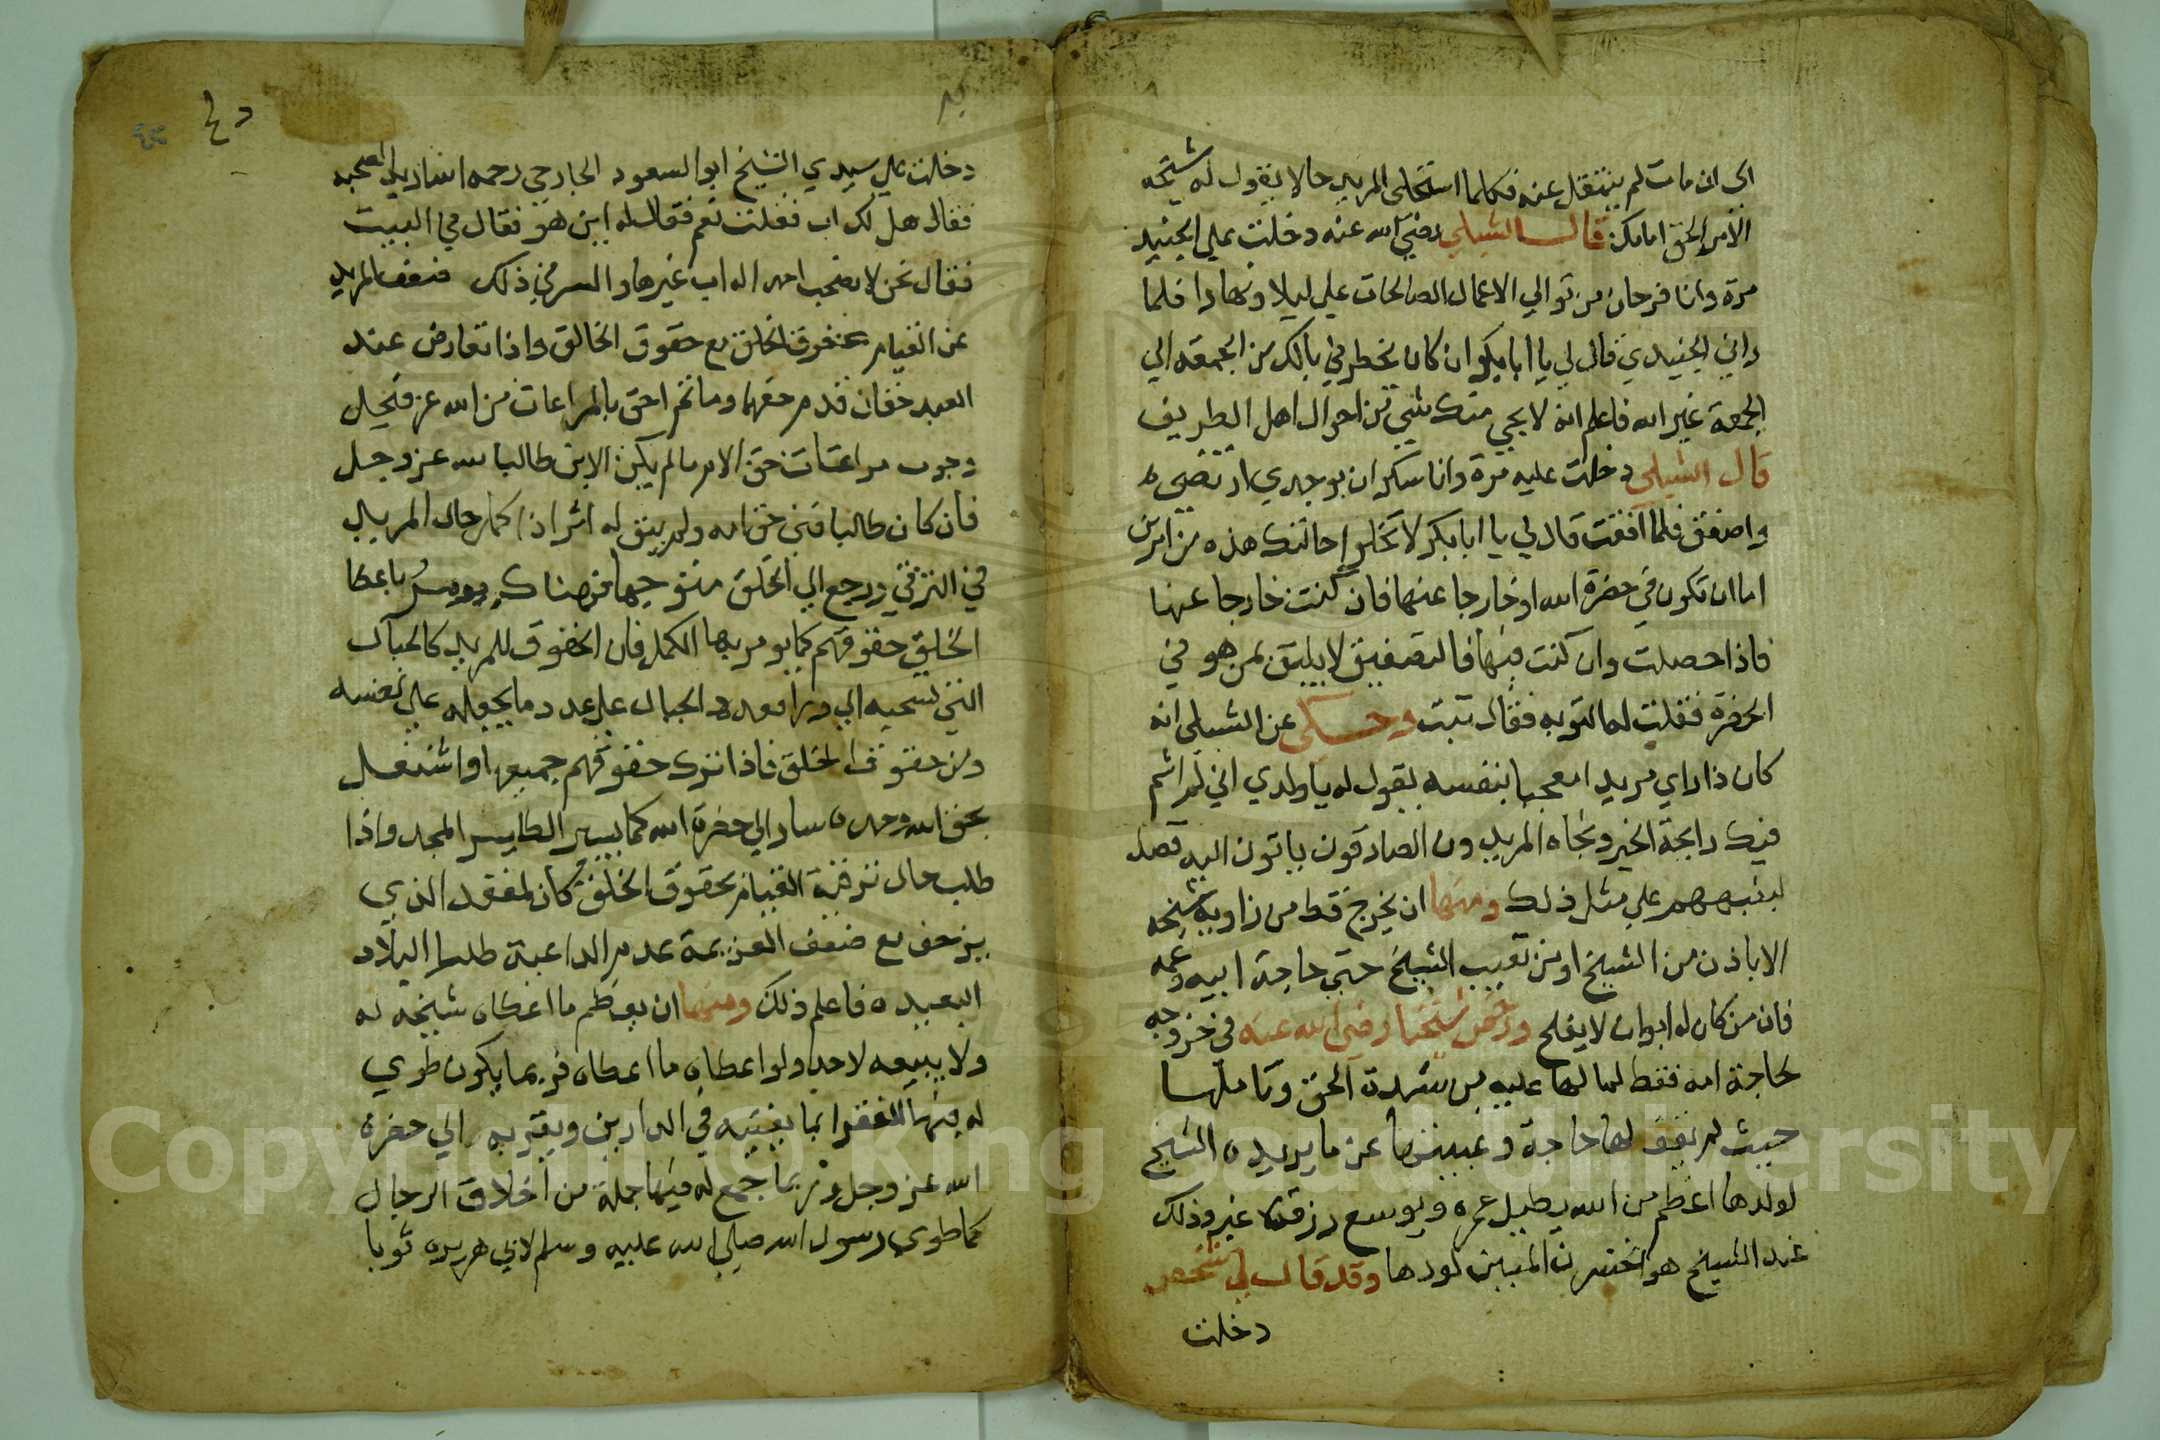 الى ان مات لم ينتقل عنه فكلما استحلى المريد حالا يقول له شيخه
الامر الحق امامك قال الشبلي رضي الله عنه دخلت علي الجنيد
مرة وانا فرحان من توالي الاعمال الصالحات علي ليلا ونهارا فلما
راني الجنيدي قال لي يا ابا بكر ان كان يخطر في بالك من الجمعة الي
الجمعة غير الله فاعلم انه لا يجي منك شي من احوال اهل الطريق
قال الشبلي دخلت عليه مرة وانا سكران بوجدي
واصفق فلما افقت قال لي يا ابا بكر لا تخلوا حالتك هذه من امرين
اما ان تكون في حضرة الله او خارجا عنها فان كنت خارجا عنها
فاذا حصلت وان كنت فيها فالتصفيق لا يليق بمن هو في
الحضرة فقلت له التوبه فقال تبت وحكى عن الشبلي انه
كان ذا راي مريدا معجبا بنفسه يقول له يا ولدي اني لم اشم
فيك رايحة الخير وتجاه المريدون الصادقون ياتون اليه قصد
لينبههم علي مثل ذلك ومنها ان يخرج قط من زاوية شيخه
الا باذن من الشيخ او من نقيب الشيخ حتي حاجة ابيه وعمه
فان من كان له ابوان لا يفلح ورخص شيخنا رضي الله عنه في خروجه
لحاجة امه فقط لما لها عليه من شدة الحق وتاملها
حيث لم يقف لها حاجة وغيبتها عن ما يريده الشيخ
لولدها اعظم من الله يطيل عمره ويوسع رزقه غير وذلك
عند الشيخ هو الخسران المبين لودها وقد قال لي شخص
دخلت
دخلت علي سيدي الشيخ ابو السعود الجارحي رحمه الله اريد الصحبه
فقال هل لك اب فقلت نعم فقال له اين هو فقال في البيت
فقال نحن لا نصحب احد اله اب غيرها والسر في ذلك ضعف المريد
عن القيام بحقوق الخلق مع حقوق الخالق واذا تعارض عند
العبد حقان قدم حقهما وما ثم احق بالمراعات من الله عز وجل
وجوب مراعات حق الام ما لم يكن الابن طالبا لله عز وجل
فان كان طالبا فني حق امه ولم يبق له اثر اذا كمل حال المريد
في الترقي ورجع الي الخلق فهناك يومر باعطا
الخلق حقوقهم كما يومر بها الكمل فان الحقوق للمريد كالحبال
التي تسحبه الي ورا الحبال علي عدد ما يجعله علي نفسه
ومن حقوق الخلق فاذا ترك حقوقهم جميعها واشتغل
بحق الله وحده سار الي حضرة الله كما يسير الطاير المجد واذا
طلب حال ترقية القيام بحقوق الخلق كان لمقعد الذي
يزحف مع ضعف العزيمة عدم الداعية طلب البلاد
البعيده فاعلم ذلك ومنها ان يعظم ما اعطاه شيخه له
ولا يبيعه لاحد ولو اعطاه ما اعطاه فربما يكون طوي
له فيها الفقرا بما يغنيه في الدارين ويقربه الي حضرة
الله عز وجل وربما جمع له فيها جملة من اخلاق الرجال
كما طوي رسول الله صلي الله عليه وسلم لابي هريره ثوبا
Copyright © King Saud University